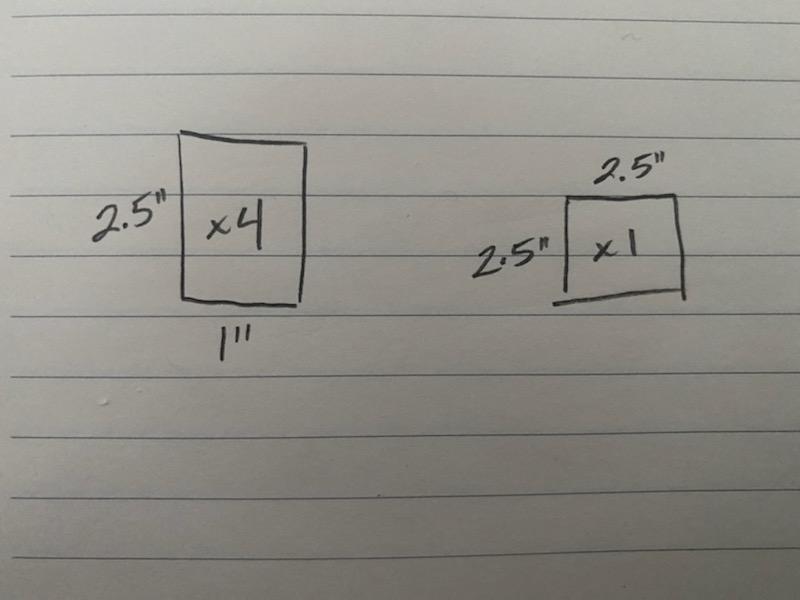 2.5"
2.5" x4
2.5" x1
1"